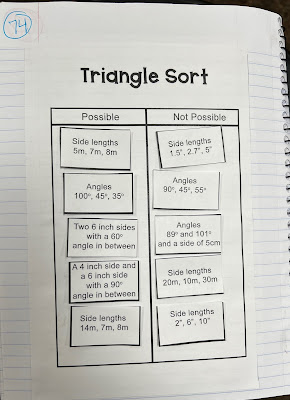 74
Triangle Sort
Possible
Not Possible
Side lengths
5m, 7m, 8m
Side lengths
1.5”, 2.7”, 5”
Angles
100°, 45°, 35°
Angles
90°, 45°, 55°
Two 6 inch sides
with a 60°
angle in between
Angles
89° and 101°
and a side of 5cm
A 4 inch side and
a 6 inch side
with a 90°
angle in between
Side lengths
20m, 10m, 30m
Side lengths
14m, 7m, 8m
Side lengths
2”, 6”, 10”